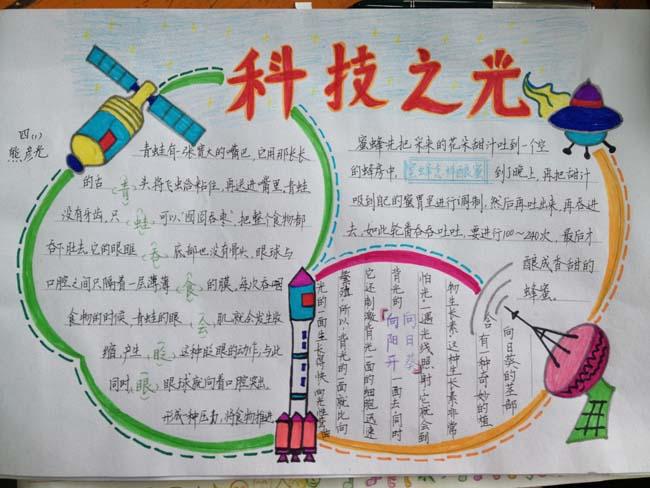 科技之光
四(1)
熊彦光
青蛙有一张宽大的嘴巴,它用那长长
的舌头将飞虫给粘住,再送进嘴里,青蛙
没有牙齿,只可以"囫囵吞枣"把整个食物都
吞下肚去,它的眼眶底部也没有骨头,眼球与
口腔之间只隔着一层薄薄的膜,每次吞咽
食物的时候,青蛙的眼肌就会发生收
缩,产生这种眨眼的动作,与此
同时,眼球就向着口腔突出,
形成一种压力,将食物推进
青
蛙
吞
食
会
眨
眼
蜜蜂先把采来的花朵甜汁吐到一个空
的蜂房中,到了晚上,再把甜汁
蜜蜂怎样酿蜜
吸到自己的蜜胃里进行调制,然后再吐出来,再吞进
去,如此轮番吞吞吐吐,要进行100~240次,最后才
酿成香甜的
蜂蜜。
向日葵的茎部
含有一种奇妙的植
物生长素,这种生长素非常
怕光,一遇光线照射,它就会到
背光的一面去,同时
向日葵
向阳开
它还刺激背光一面的细胞迅速
繁殖,所以,背光的一面就比向
光的一面生长得快